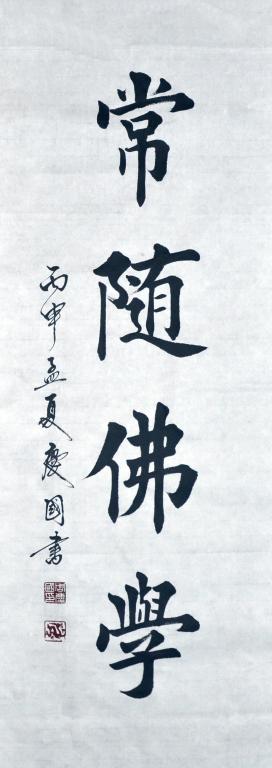 常随佛學
丙申孟夏慶國書